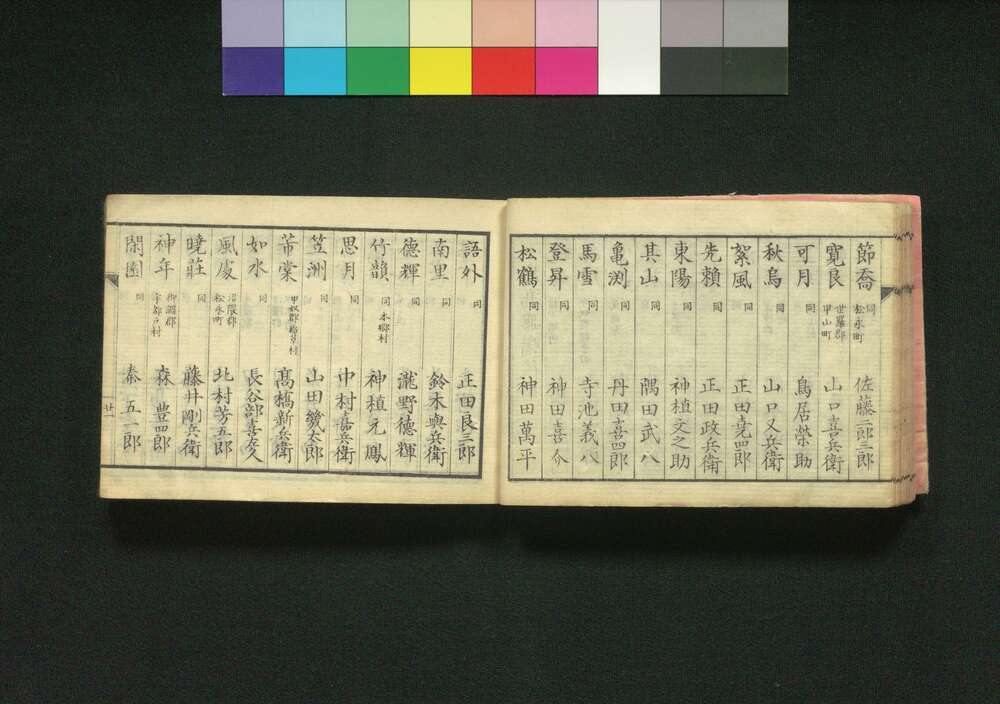 節喬 同 松永町 佐藤二郎三郎
寛良 世羅郡 甲山町 山口喜兵衛
可月 同 鳥居榮助
秋烏 同 山口又兵衛
絮風 同 正田堯四郎
先賴 同 正田政兵衛
東陽 同 神植文之助
其山 同 隅田武八
亀渕 同 丹田喜四郎
馬雪 同 寺池義八
登昇 同 神田喜介
松鶴 同 神田萬平
語外 同 正田良三郎
南里 同 鈴木與兵衛
德輝 同 瀧野德輝
竹韻 同 本郷村 神植元鳳
思月 同 中村嘉兵衛
笠洲 同 山田幾太郎
芾棠 甲奴郡 村 髙橋新兵衛
如水 同 長谷部喜久
風處 沼隈郡 松永町 北村芳五郎
曉莊 同 藤井剛兵衛
神年 御調郡 宇都戸村 森豊四郎
閑園 同 秦五一郎
廿一